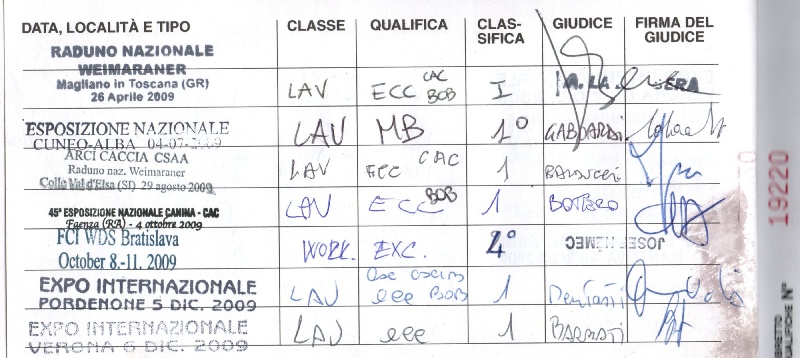 DATA, LOCALITÀ E TIPO CLASSE QUALIFICA CLAS-SIFICA GIUDICE FIRMA DEL GIUDICE
RADUNO NAZIONALE
WEIMARANER
Magliano in Toscana (GR)
26 Aprile 2009
LAV ECC CAC BOB I
ESPOSIZIONE NAZIONALE
CUNEO-ALBA 04-07-2009
LAV MB 1°
ARCI CACCIA CSAA
Raduno naz. Weimaraner
Colle Val d'Elsa (SI) 29 agosto 2009
LAV ECC CAC 1
45ª ESPOSIZIONE NAZIONALE CANINA - CAC
Faenza (RA) - 4 ottobre 2009
LAV ECC BOB 1 BOTTERO
FCI WDS Bratislava
October 8.-11. 2009
WORK. EXC. 4° JOSEF NĚMEC
EXPO INTERNAZIONALE
PORDENONE 5 DIC. 2009
LAV BOB 1
EXPO INTERNAZIONALE
VERONA 6 DIC. 2009
LAV 1
19220